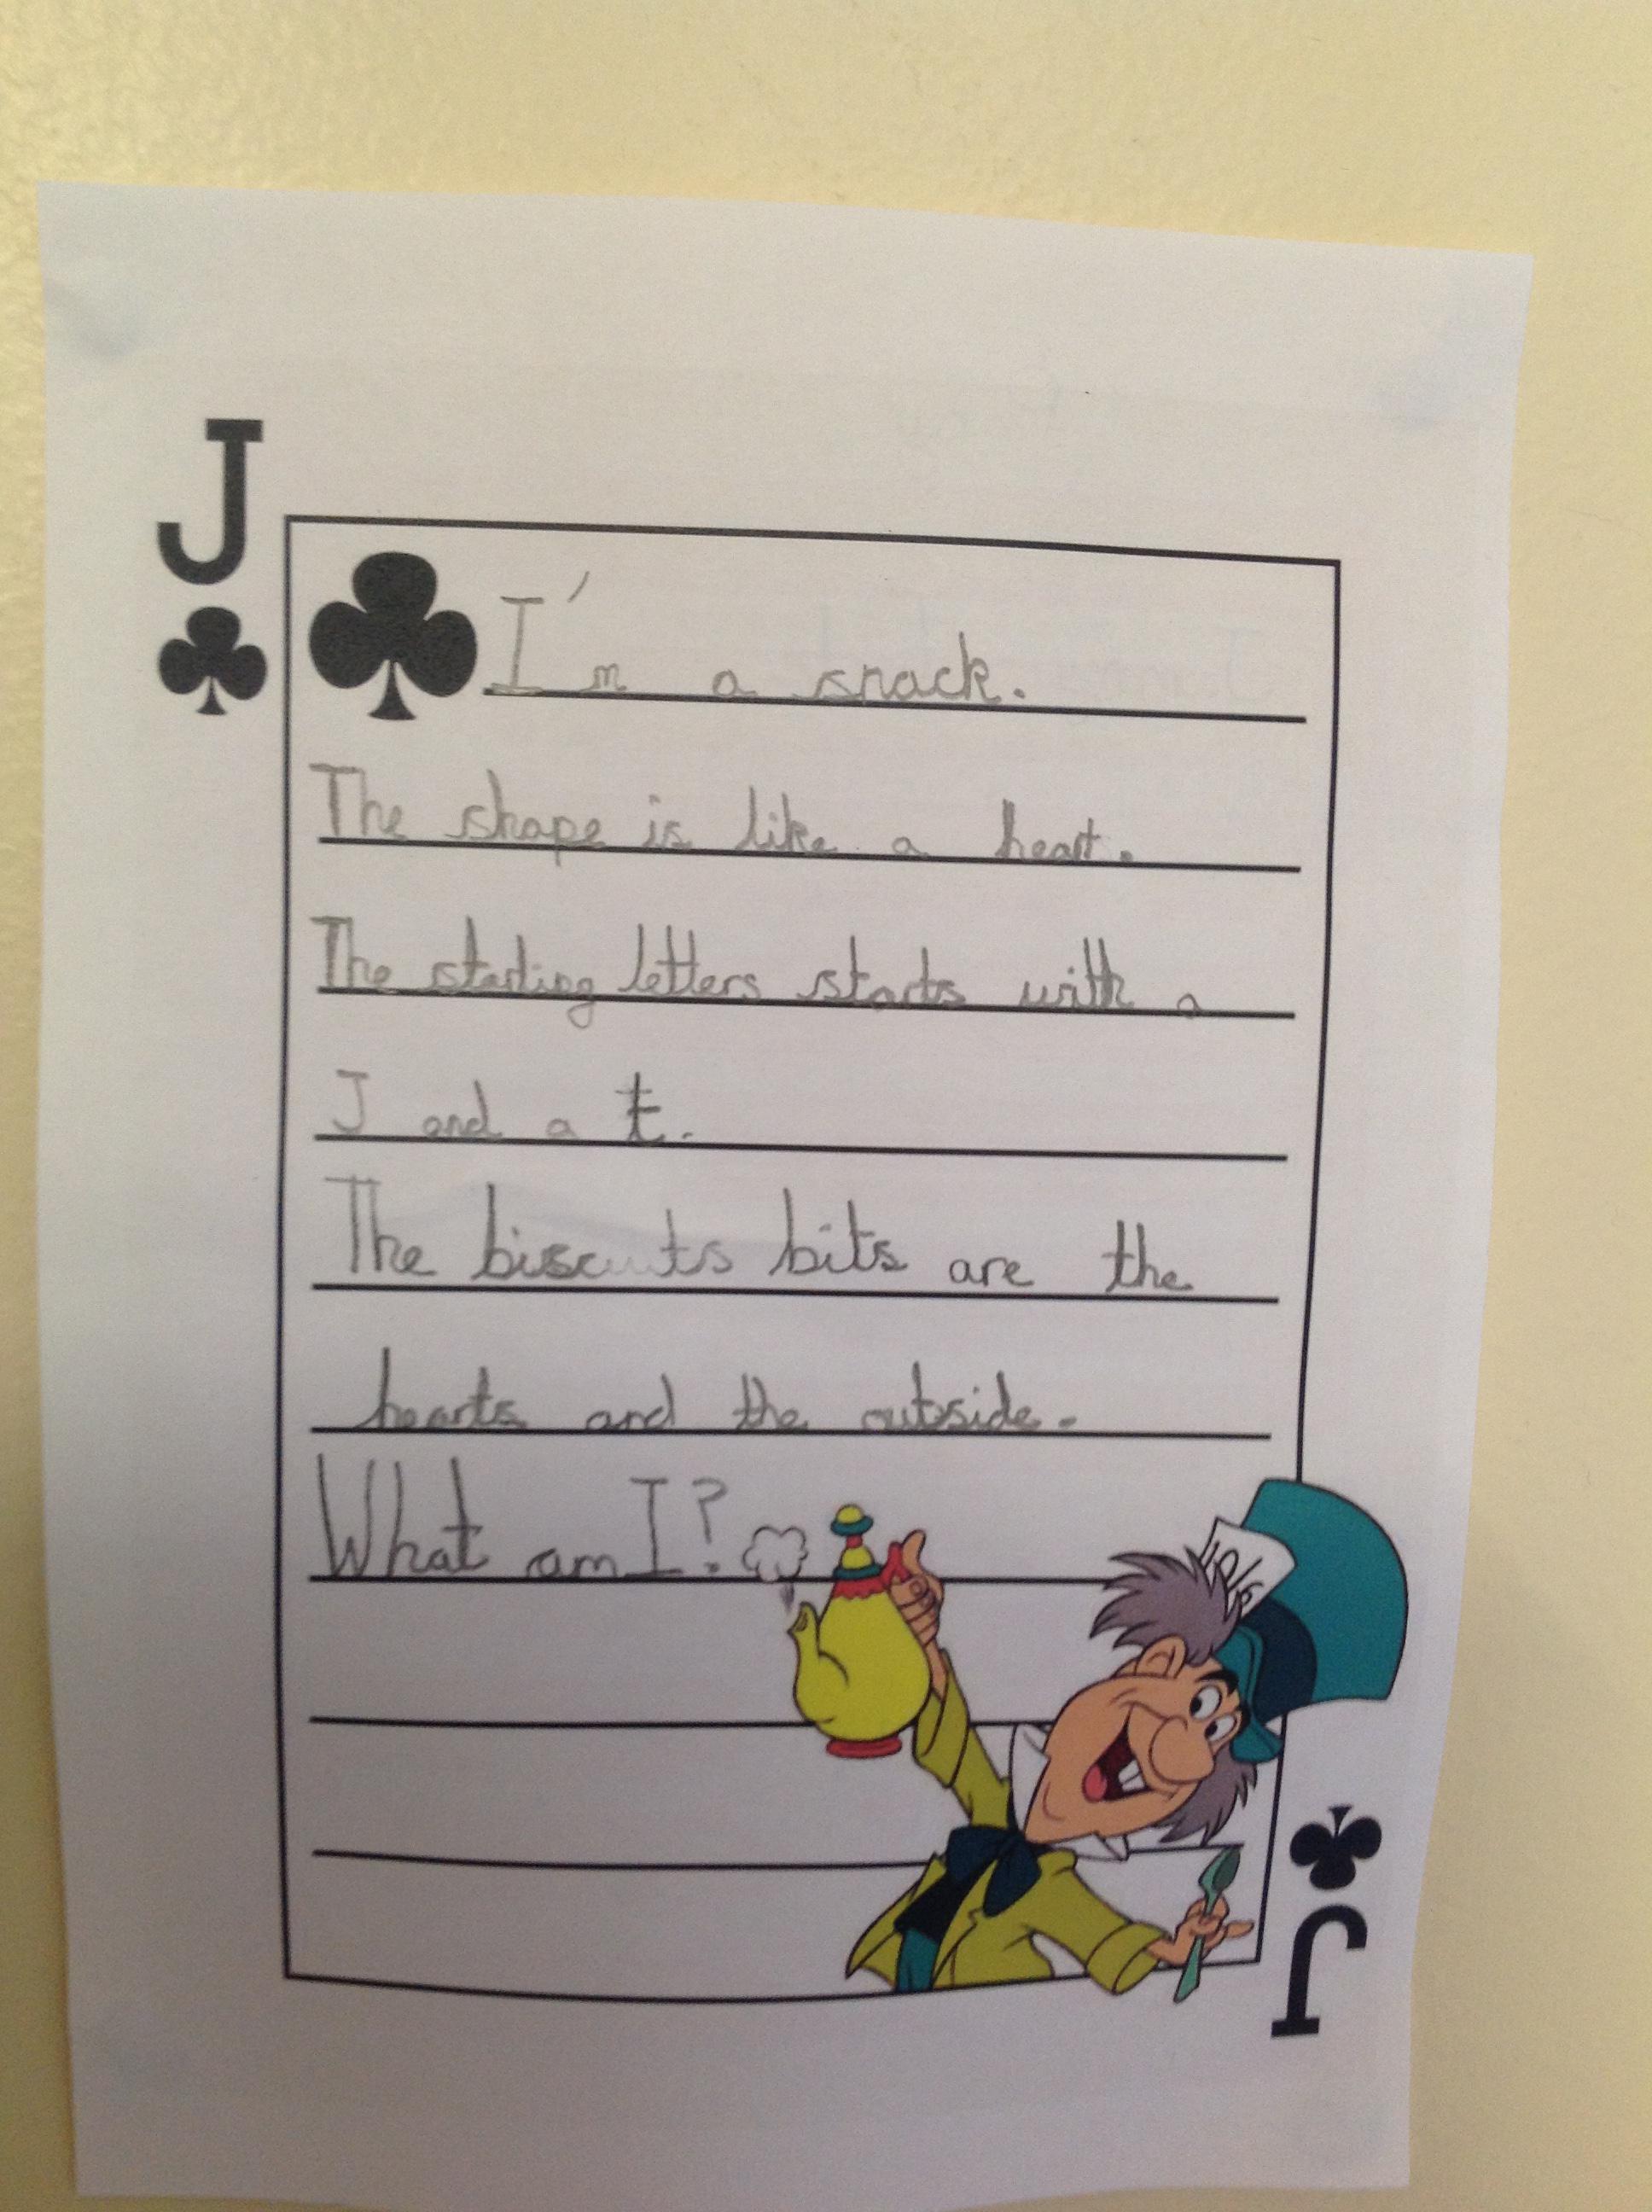 J
I'm a snack.
The shape is like a heart.
The starting letters starts with a
J and a t.
The biscuits bits are the
hearts and the outside.
What am I?
J